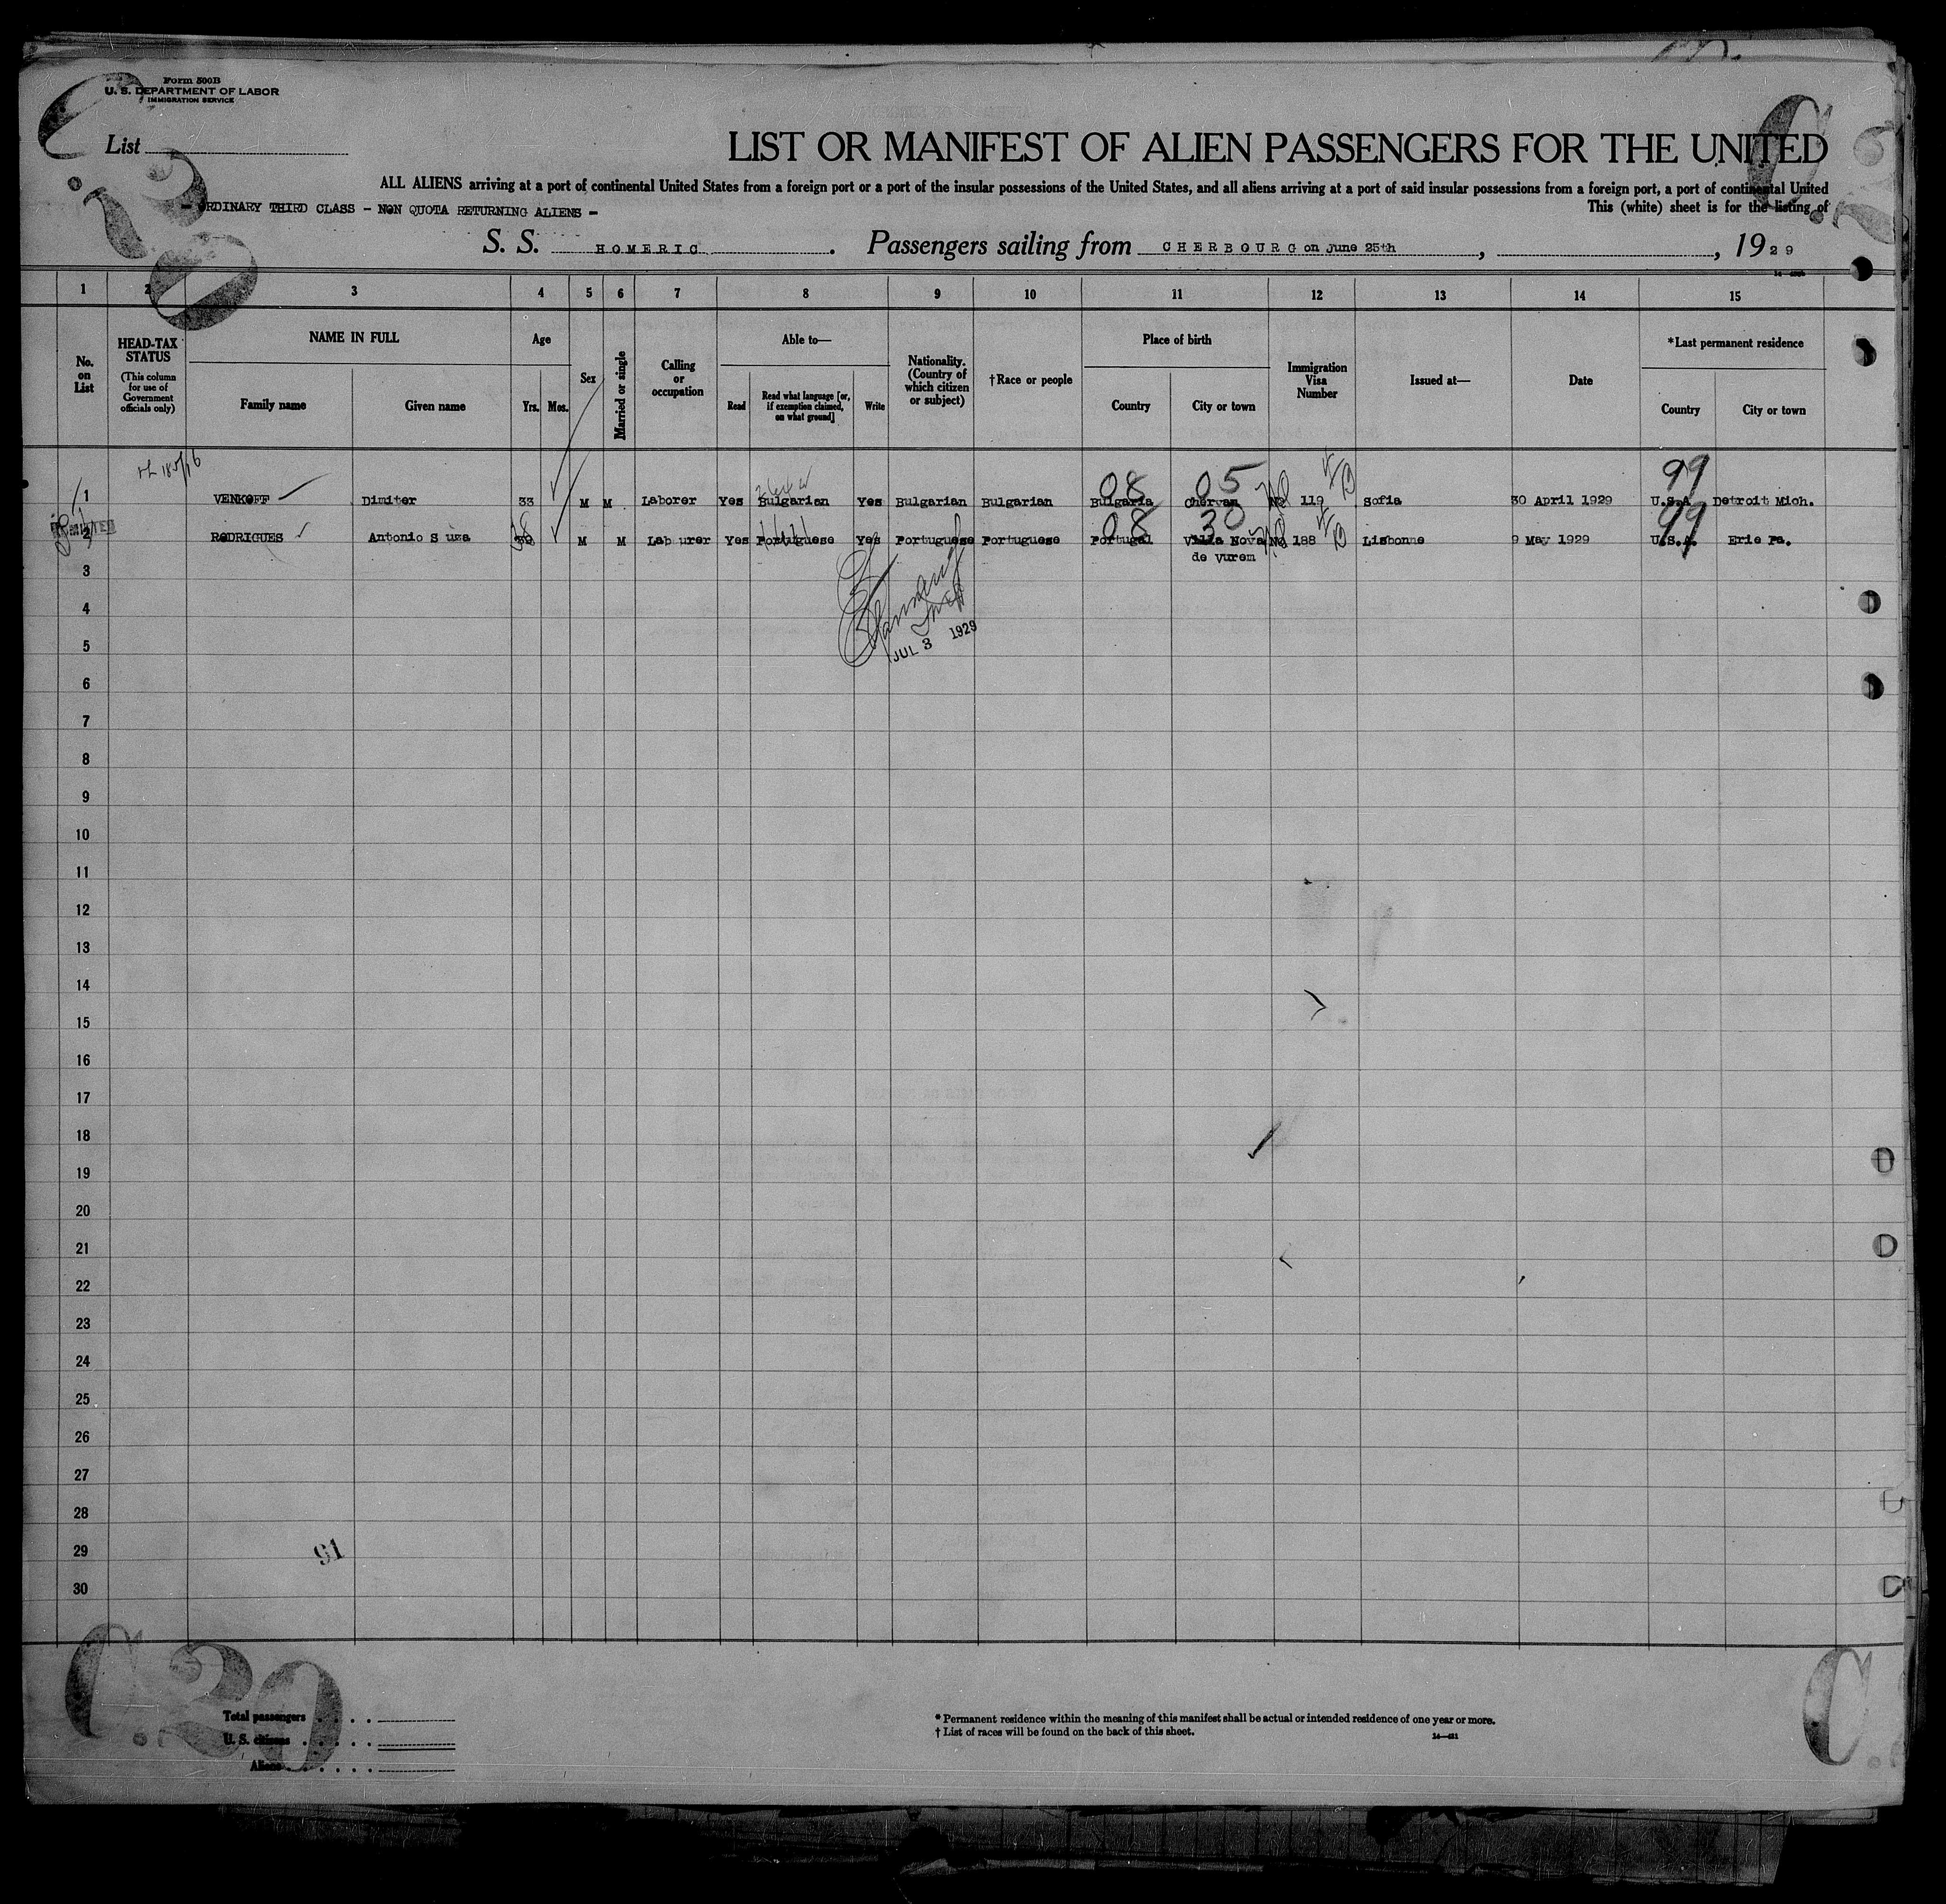 Form 500B
U. S. DEPARTMENT OF LABOR
IMMIGRATION SERVICE
List
LIST OR MANIFEST OF ALIEN PASSENGERS FOR THE UNITED
ALL ALIENS arriving at a port of continental United States from a foreign port or a port of the insular possessions of the United States, and all aliens arriving at a port of said insular possessions from a foreign port, a port of continental United
- ORDINARY THIRD CLASS - NON QUOTA RETURNING ALIENS -
This (white) sheet is for the listing of
S. S. HOMERIC. Passengers sailing from CHERBOURG on June 25th, , 1929
1 2 3 4 5 6 7 8 9 10 11 12 13 14 15
No. on List
HEAD-TAX STATUS
(This column for use of Government officials only)
NAME IN FULL
Family name
Given name
Age
Yrs. Mos.
Sex
Married or single
Calling or occupation
Able to—
Read
Read what language [or, if exemption claimed, on what ground]
Write
Nationality. (Country of which citizen or subject)
†Race or people
Place of birth
Country
City or town
Immigration Visa Number
Issued at—
Date
*Last permanent residence
Country
City or town
08 05 99
1 VENKOFF Dimiter 33 M M Laborer Yes Bulgarian Yes Bulgarian Bulgarian Bulgaria Chervan No 119 Sofia 30 April 1929 U.S.A. Detroit Mich.
08 30 99
2 RODRIGUES Antonio S uza M M Lab urer Yes Portuguese Yes Portuguese Portuguese Portugal Villa Nova No 188 Lisbonne 9 May 1929 U.S.A. Erie Pa.
de Vurem
3
4
JUL 3 1929
5
6
7
8
9
10
11
12
13
14
15
16
17
18
19
20
21
22
23
24
25
26
27
28
29
91
30
C. 20
Total passengers
U. S. citizens
Aliens
* Permanent residence within the meaning of this manifest shall be actual or intended residence of one year or more.
† List of races will be found on the back of this sheet.